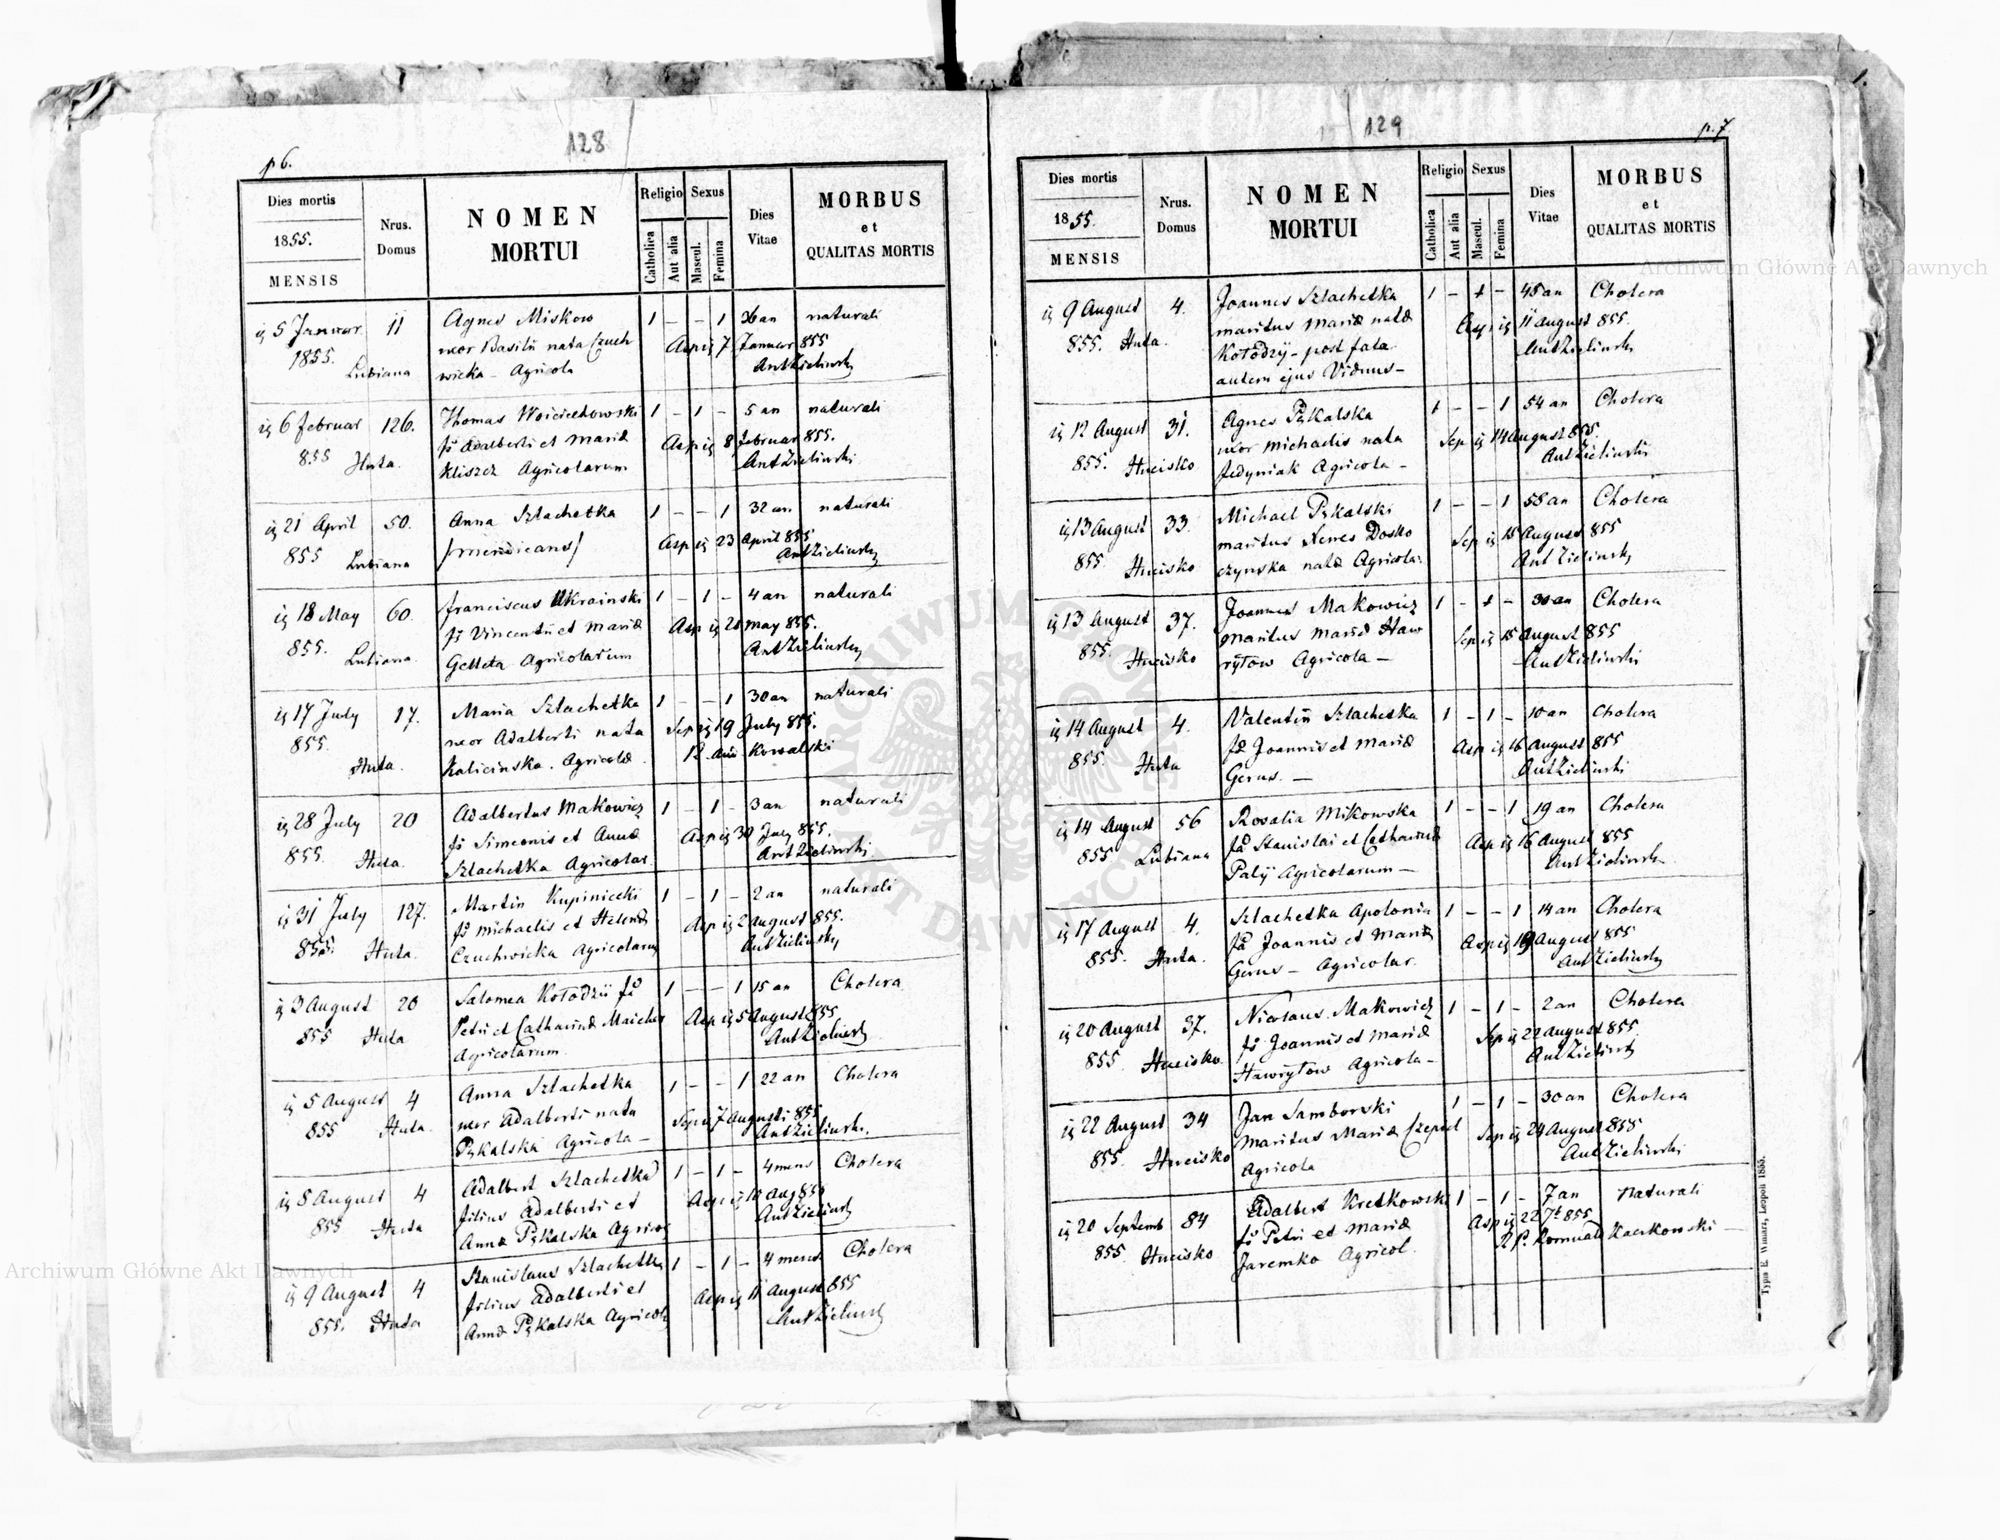 128
p 6.
Dies mortis
1855.
MENSIS
Nrus.
Domus
NOMEN
MORTUI
Religio
Catholica
Aut alia
Sexus
Mascul.
Femina
Dies
Vitae
MORBUS
et
QUALITAS MORTIS
5 Januar 11 Agnes Miskow 1 – – 1 36 an naturali
1855. uxor Basilii nata Czuch Asp 7 Januar 855
Lubiana wicka – Agricola Ant Zielinski
6 Februar 126. Thomas Woiciechowski 1 – 1 – 5 an naturali
855 fs Adalberti et Mariæ Asp 8 Februar 855.
Huta. Kliszcz Agricolarum Ant Zielinski
21 April 50. Anna Szlachetka 1 – – 1 32 an naturali
855 Lubiana /mendicans/ Asp 23 April 855
Ant Zielinski
18 May 60. Franciscus Ukrainski 1 – 1 – 4 an naturali
855. fs Vincentii et Mariæ Asp 20 May 855.
Lubiana. Gelleta Agricolarum Ant Zielinski
17 July 17. Maria Szlachetka 1 – – 1 30 an naturali
855. uxor Adalberti nata Sep 19 July 855.
Huta. Kalicinska. Agricolæ Kowalski
28 July 20 Adalbertus Makowicz 1 – 1 – 3 an naturali
855. Huta. fs Simeonis et Annæ Asp 30 July 855.
Szlachetka Agricolar Ant Zielinski
31 July 127. Martin Kupinicki 1 – 1 – 2 an naturali
855. Huta. fs Michaelis et Helenæ Asp 2 August 855.
Czuchwicka Agricolarum Ant Zielinski
3 August 20 Salomea Kołodzii fa 1 – – 1 15 an Cholera
855 Huta Petri et Catharinæ Maicher Asp 5 August 855
Agricolarum Ant Zielinski
5 August 4 Anna Szlachetka 1 – – 1 22 an Cholera
855 Huta. uxor Adalberti nata Sep 7 Augusti 855
Pękalska Agricola – Ant Zielinski.
8 August 4 Adalbert Szlachetka 1 – 1 – 4 mens Cholera
855 Huta filius Adalberti et Asp 10 Aug 855
Annæ Pękalska Agricol Ant Zielinski
9 August 4 Stanislaus Szlachetka 1 – 1 – 4 mens Cholera
855. Huta filius Adalberti et Asp 11 August 855
Annæ Pękalska Agricolæ Ant Zielinski
129
p. 7
Dies mortis
1855.
MENSIS
Nrus.
Domus
NOMEN
MORTUI
Religio
Catholica
Aut alia
Sexus
Mascul.
Femina
Dies
Vitae
MORBUS
et
QUALITAS MORTIS
9 August 4. Joannes Szlachetka 1 – 1 – 48 an Cholera
855. Huta. maritus Mariæ natæ Asp 11 August 855.
Kołodzij – post fata Ant Zielinski
autem ejus Viduus –
12 August 31. Agnes Pękalska 1 – – 1 54 an Cholera
855. Hucisko uxor Michaelis nata Sep 14 August 855.
Fedyniak Agricola – Ant Zielinski
13 August 33. Michael Pękalski 1 – – 1 58 an Cholera
855. Hucisko maritus Xenes Dosko Sep 15 August 855
czynska natæ Agricola. Ant Zielinski
13 August 37. Joannes Makowicz 1 – 1 – 30 an Cholera
855. Hucisko maritus Mariæ Haw Sep 15 August 855
rytow Agricola – Ant Zielinski
14 August 4. Valentin Szlachetka 1 – 1 – 10 an Cholera
855. Huta fs Joannis et Mariæ Asp 16 August 855
Gerus. – Ant Zielinski
14 August 56 Rosalia Mikowska 1 – – 1 19 an Cholera
855 Lubiana fa Stanislai et Catharinæ Asp 16 August 855
Palij Agricolarum – Ant Zielinski
17 August 4. Szlachetka Apolonia 1 – – 1 14 an Cholera
855. Huta. fa Joannis et Mariæ Asp 19 August 855
Gerus – Agricolar. Ant Zielinski
20 August 37. Nicolaus Makowicz 1 – 1 – 2 an Cholera
855. Hucisko. fs Joannis et Mariæ Sep 22 August 855
Hawrytow Agricola – Ant Zielinski
22 August 34 Jan Samborski 1 – 1 – 30 an Cholera
855. Hucisko Maritus Mariæ Czepiel Sep 24 August 855
Agricola Ant Zielinski
20 Septemb 84 Adalbert Kretkowski 1 – 1 – 7 an Naturali
855. Hucisko fs Petri et Mariæ Asp 22 7b 855
Jaremko Agricol. R. P. Romuald Kaczkowski –
Typis E. Winiarz, Leopoli 1855.
Archiwum Główne Akt Dawnych
Archiwum Główne Akt Dawnych
ARCHIWUM GŁÓWNE AKT DAWNYCH